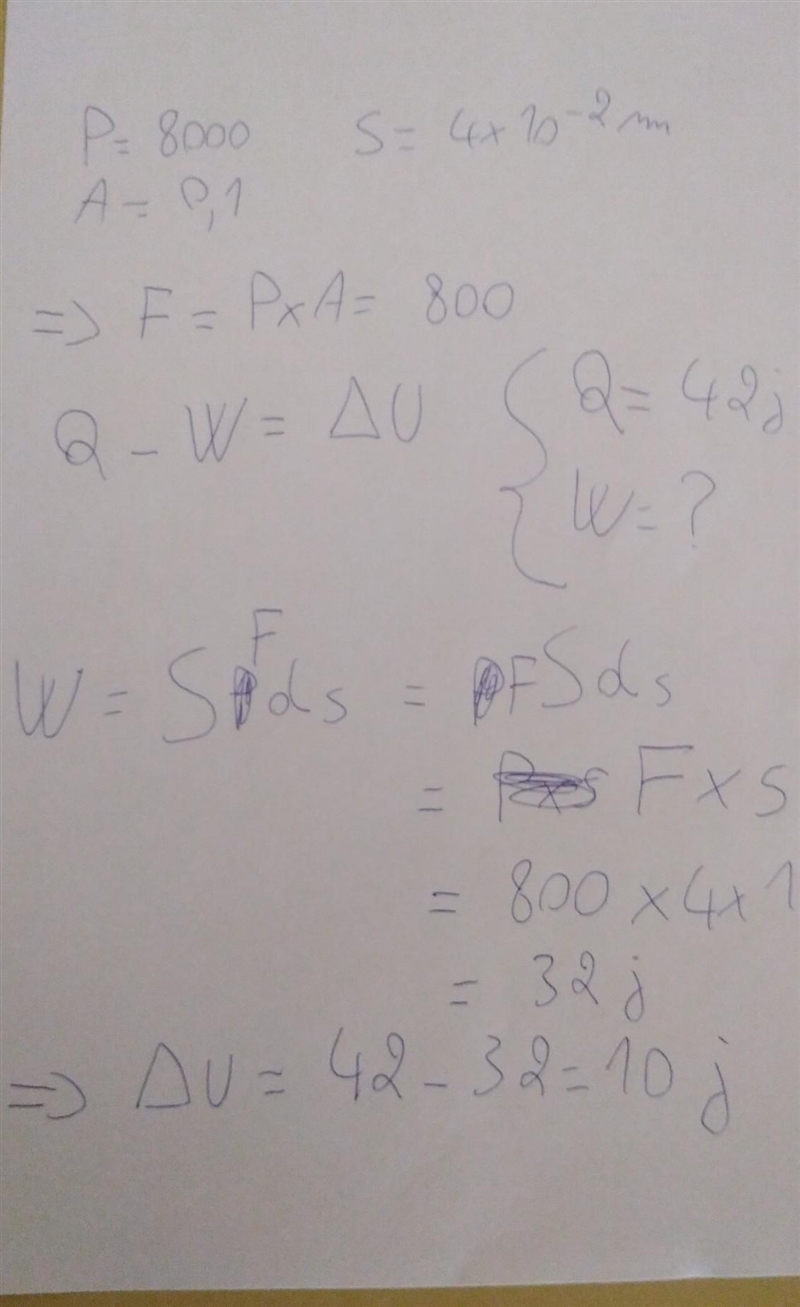 P= 8000 S= 4x10⁻² m
A= 0,1
=> F= PxA= 800
Q - W= ΔU { Q= 42j
W= ?
W= ∫Fds = F∫ds
= Fxs
= 800x4x1
= 32j
=> ΔU= 42-32=10 j